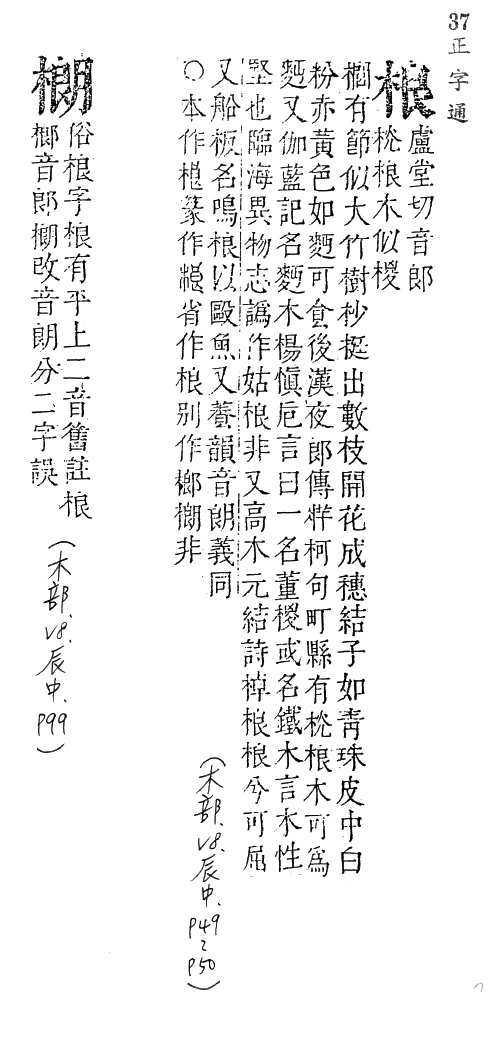 37
正字通
桹
盧堂切音郎
桄桹木似椶
櫚有節似大竹樹杪挺出數枝開花成穗結子如青珠皮中白
粉赤黃色如麪可食後漢夜郎傳牂柯句町縣有桄桹木可爲
麪又伽藍記名麪木楊愼巵言曰一名董椶或名鐵木言木性
堅也臨海異物志譌作姑桹非又高木元結詩樟桹桹兮可屈
又船板名鳴桹以毆魚又養韻音朗義同
○本作桹篆作省作桹别作榔㮾非
㮾
俗桹字桹有平上二音舊註桹
榔音郎㮾改音朗分二字誤
(木部、V8.辰中、P99)
(木部、V8.辰中、P49~P50)